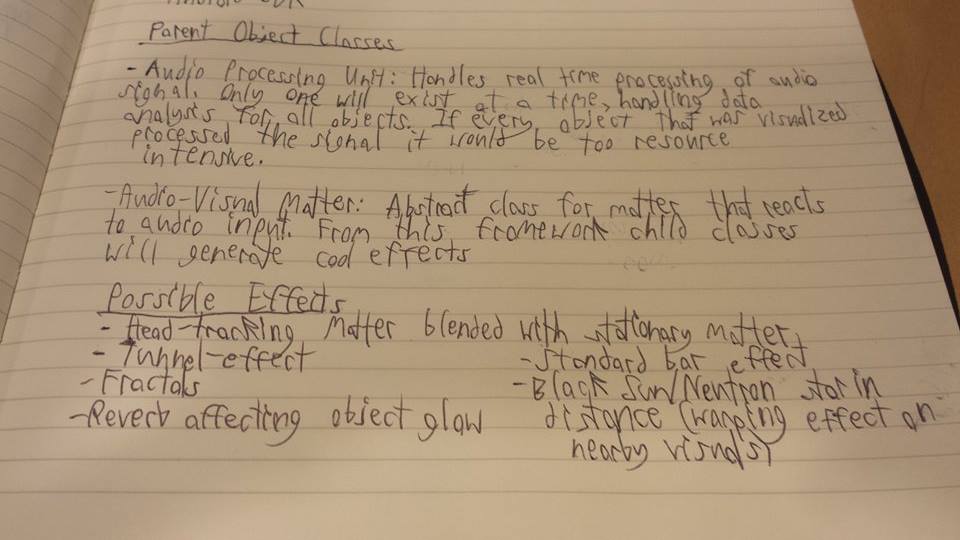 Parent Object Classes
- Audio Processing Unit: Handles real time processing of audio
signal. Only one will exist at a time, handling data
analysis for all objects. If every object that was visualized
processed the signal it would be too resource
intensive.
- Audio-Visual Matter: Abstract class for matter that reacts
to audio input. From this framework child classes
will generate cool effects
Possible Effects
- Head-tracking Matter blended with stationary matter,
- Tunnel-effect
- Fractals
- Reverb affecting object glow
- Standard bar effect
- Black Sun/Neutron star in
distance (warping effect on
nearby visuals)